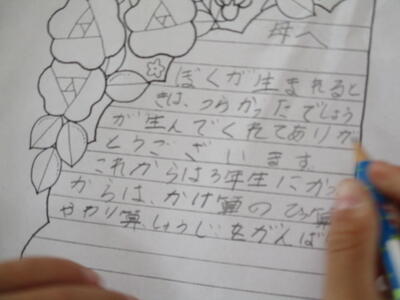 母へ
ぼくが生まれると
きは、つらかったでしょう
が生んでくれてありが
とうございます。
これからは3年生になっ
からは、かけ算のひっ算
やわり算、しょうじをがんば